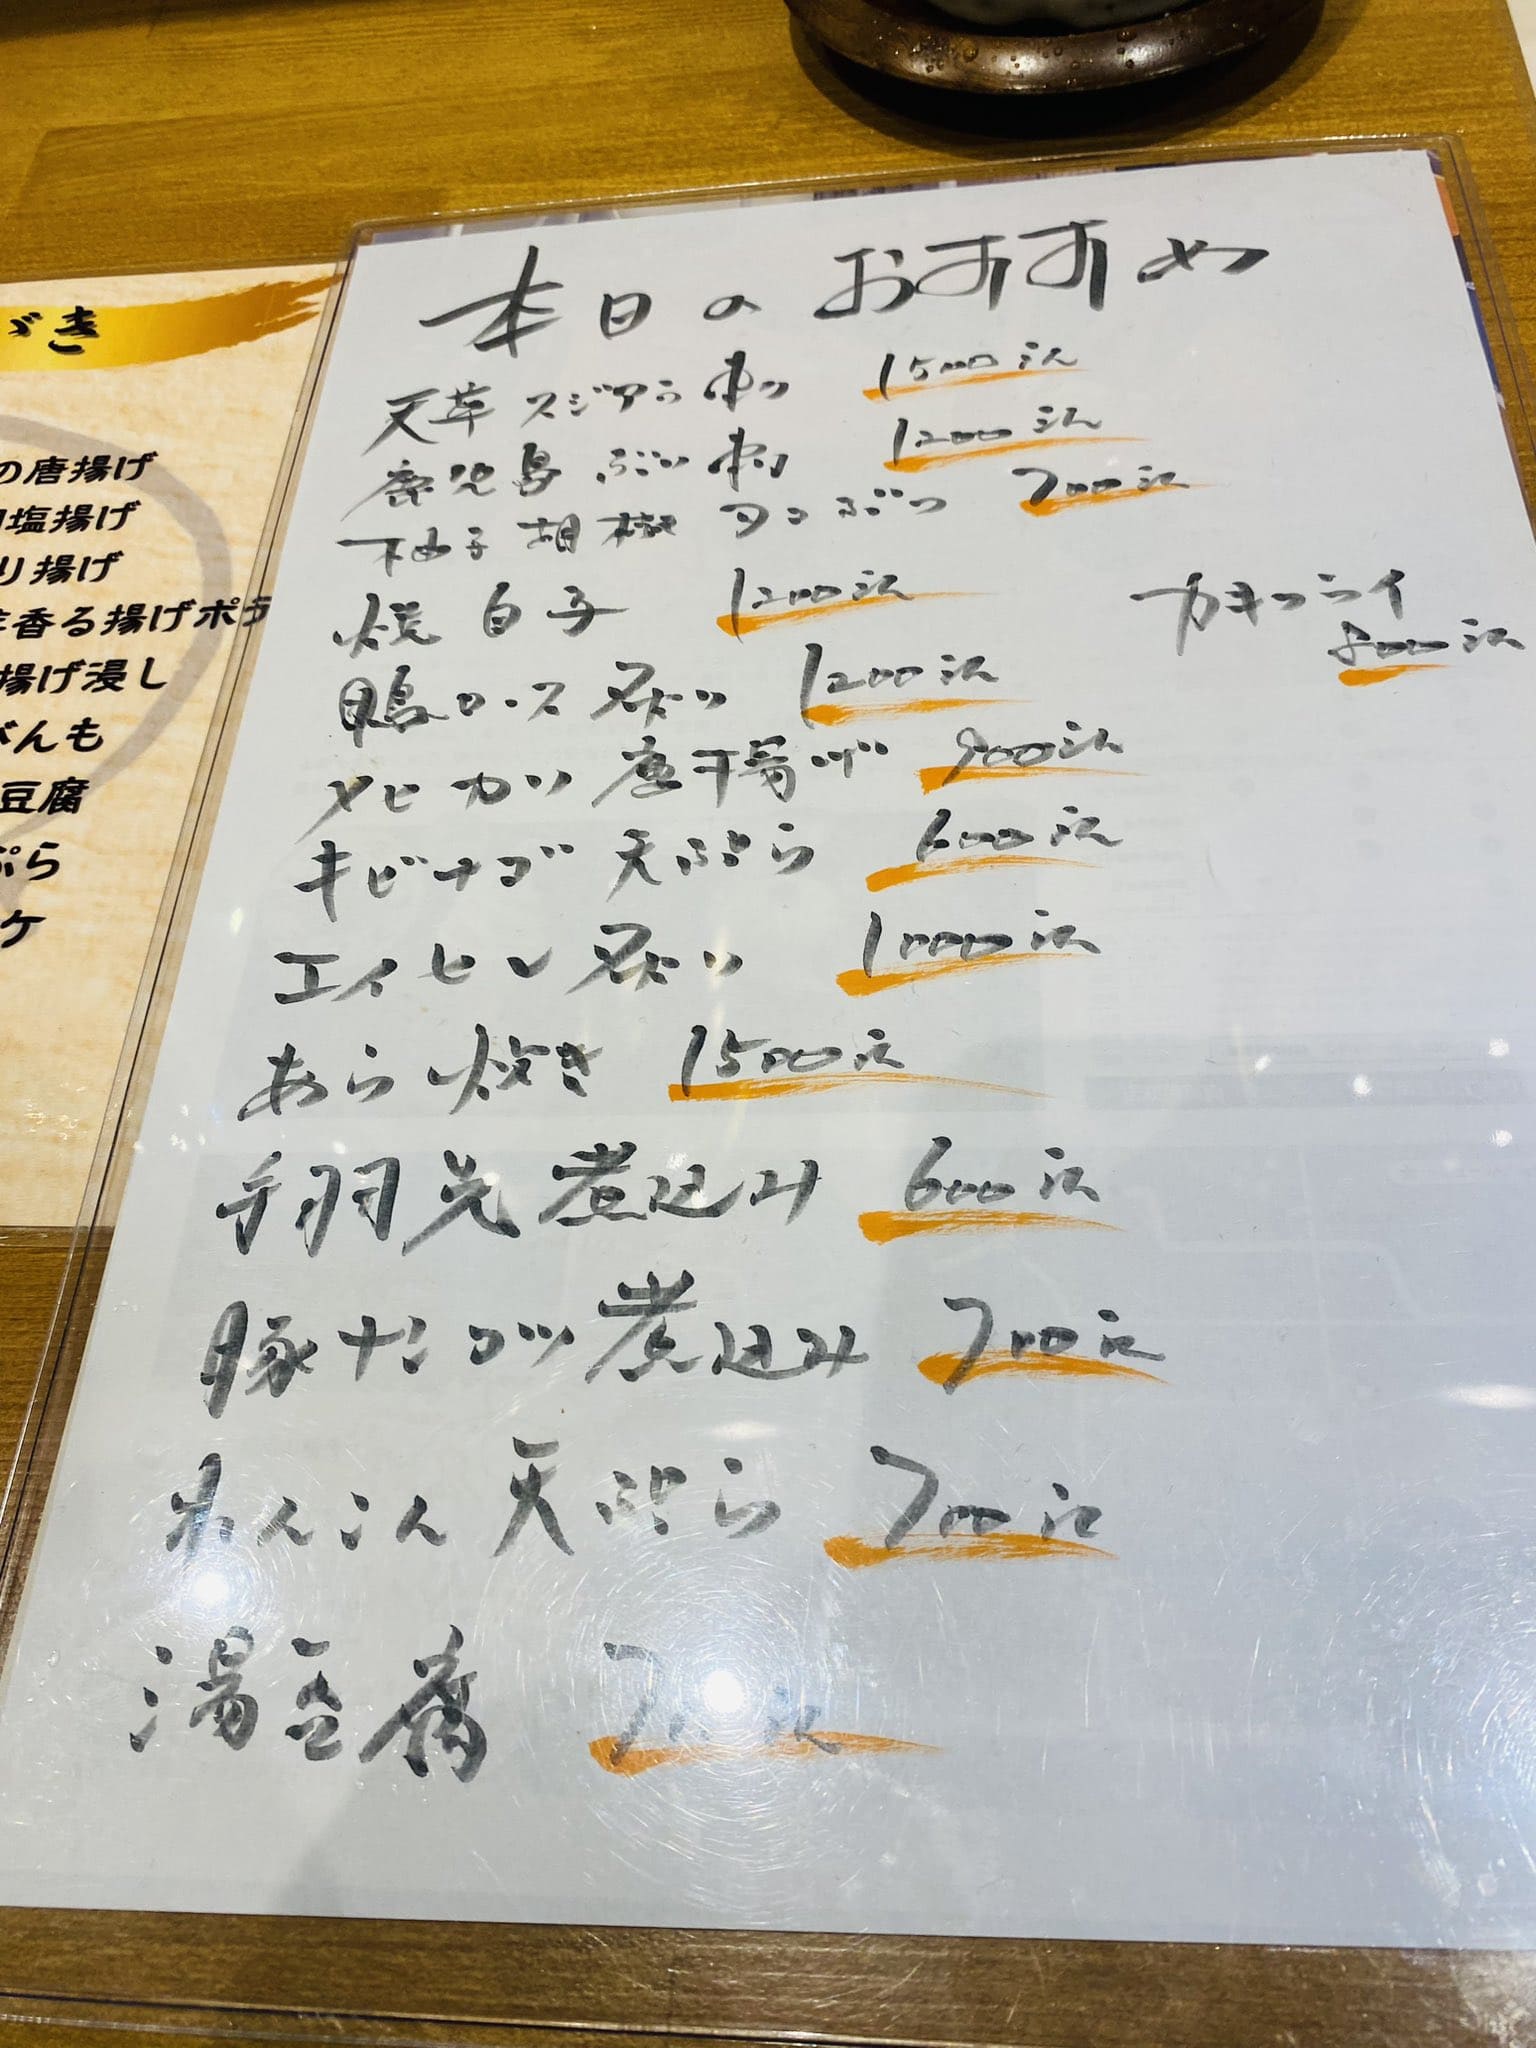 づき
の唐揚げ
塩揚げ
り揚げ
香る揚げポテ
揚げ浸し
がんも
豆腐
ぷら
ケ
本日のおすすめ
天草 スジアラ刺し 1500円
鹿児島 ぶり刺 1200円
柚子胡椒 タコぶつ 700円
焼白子 1200円
カキフライ
800円
鴨ロース炙り 1200円
メヒカリ唐揚げ 900円
キビナゴ天ぷら 600円
エイヒレ炙り 1000円
あら炊き 1500円
手羽先煮込み 600円
豚ナンコツ煮込み 700円
れんこん天ぷら 700円
湯豆腐 700円